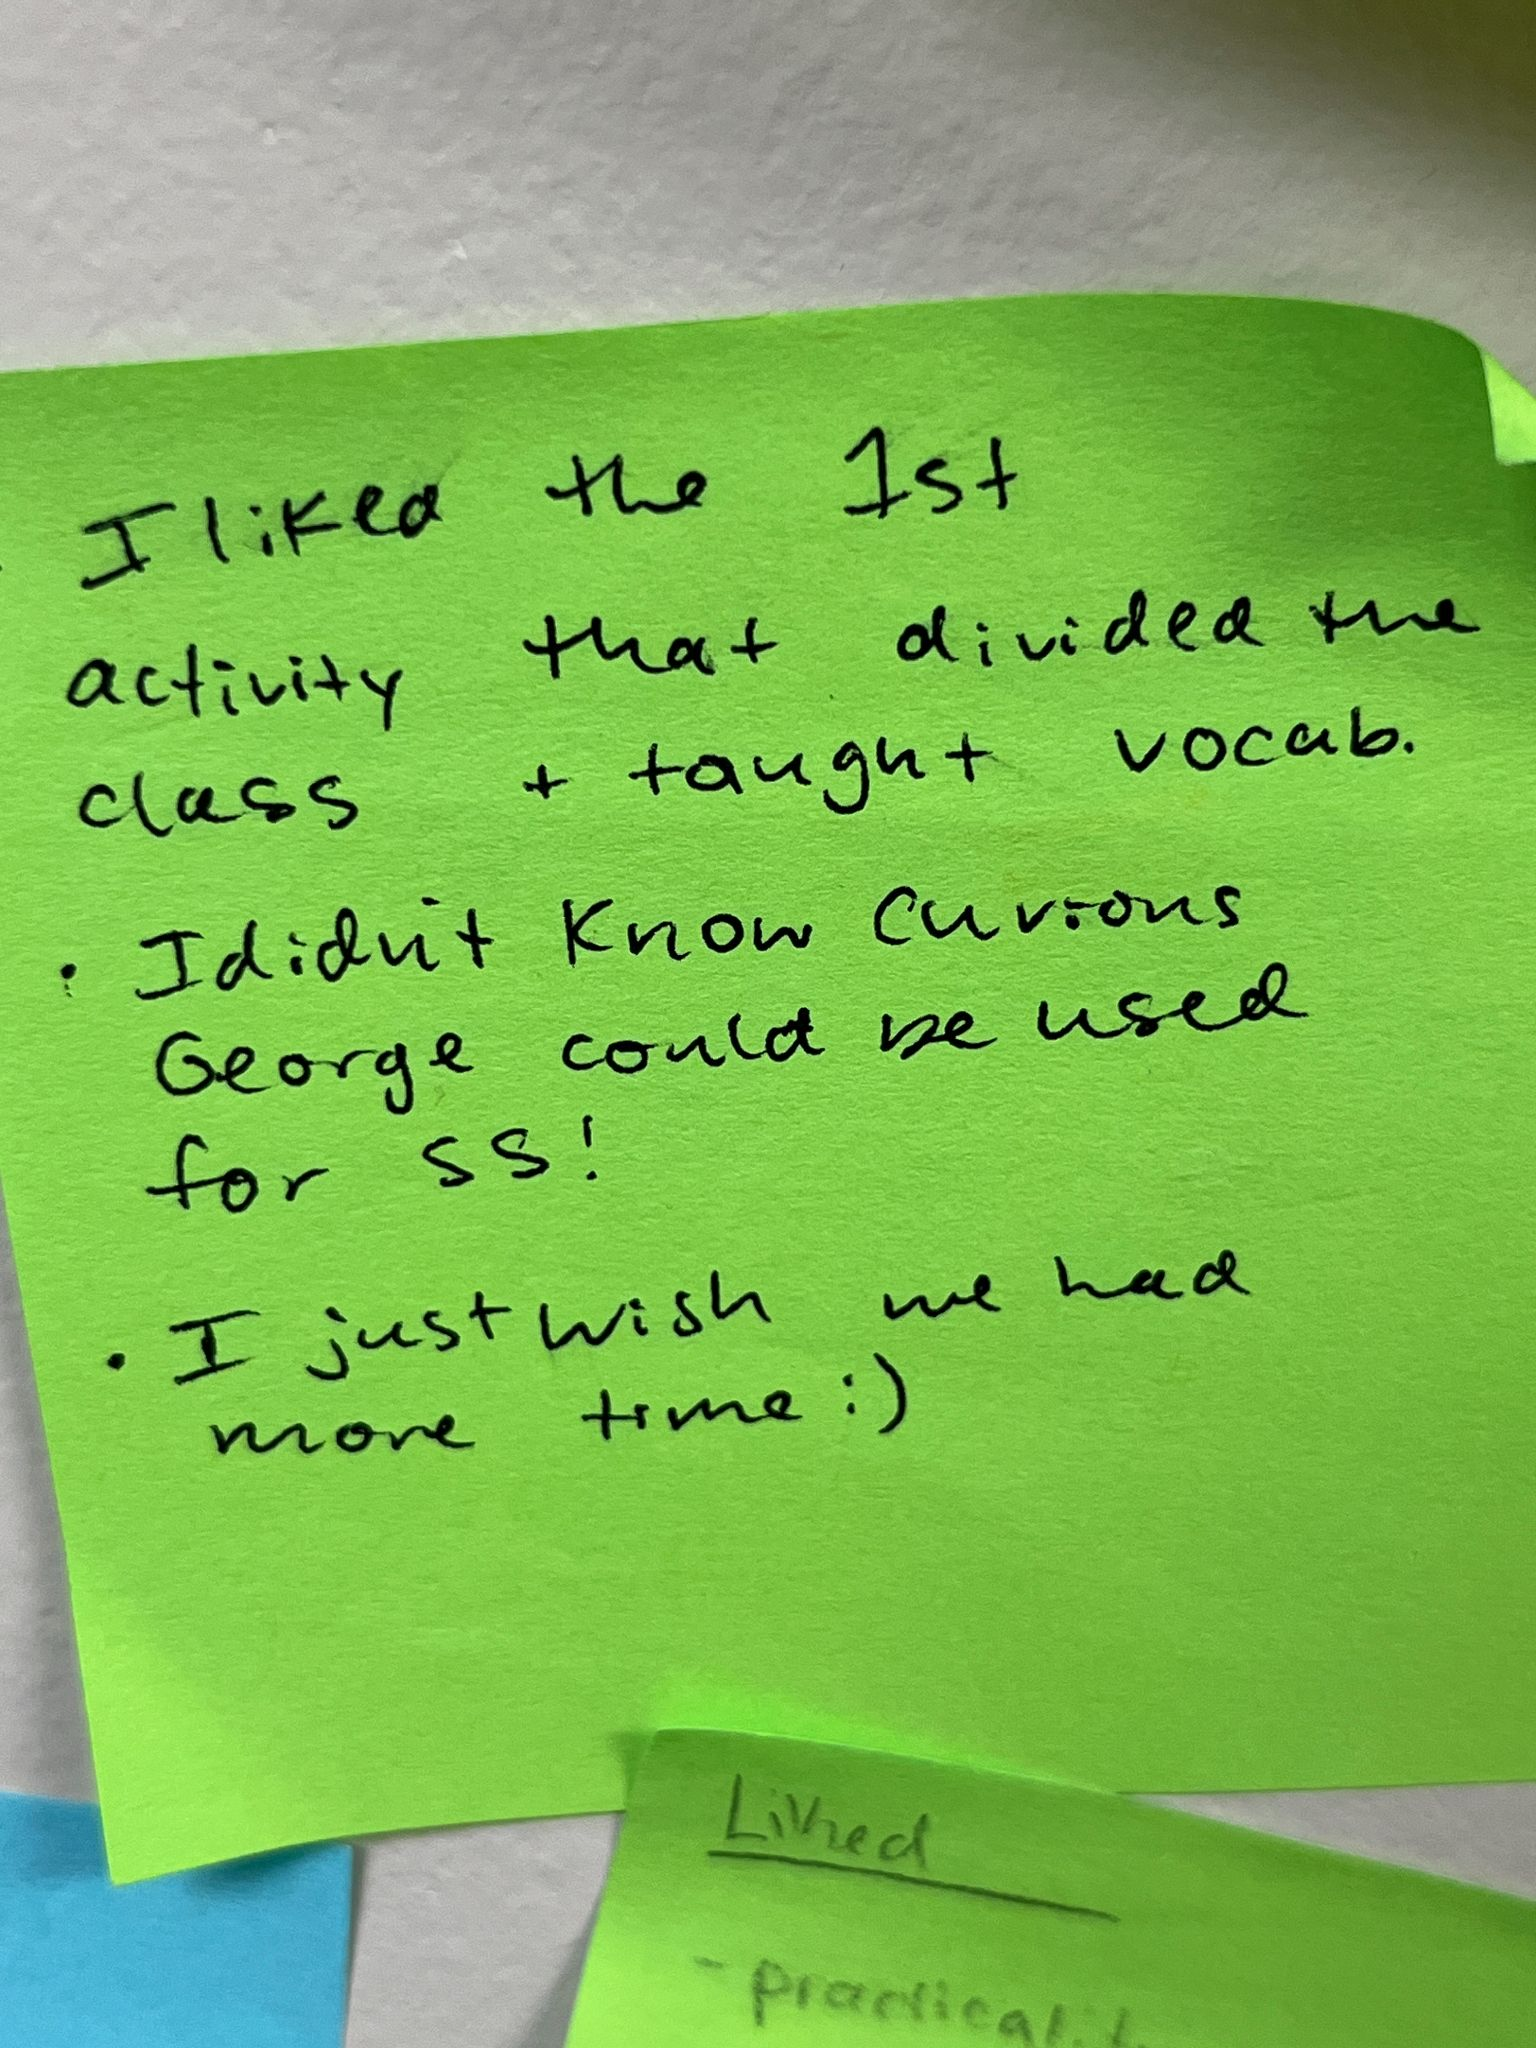 · I liked the 1st
activity that divided the
class + taught vocab.
· I didn't know Curious
George could be used
for SS!
· I just wish we had
more time :)
Liked
- practicality